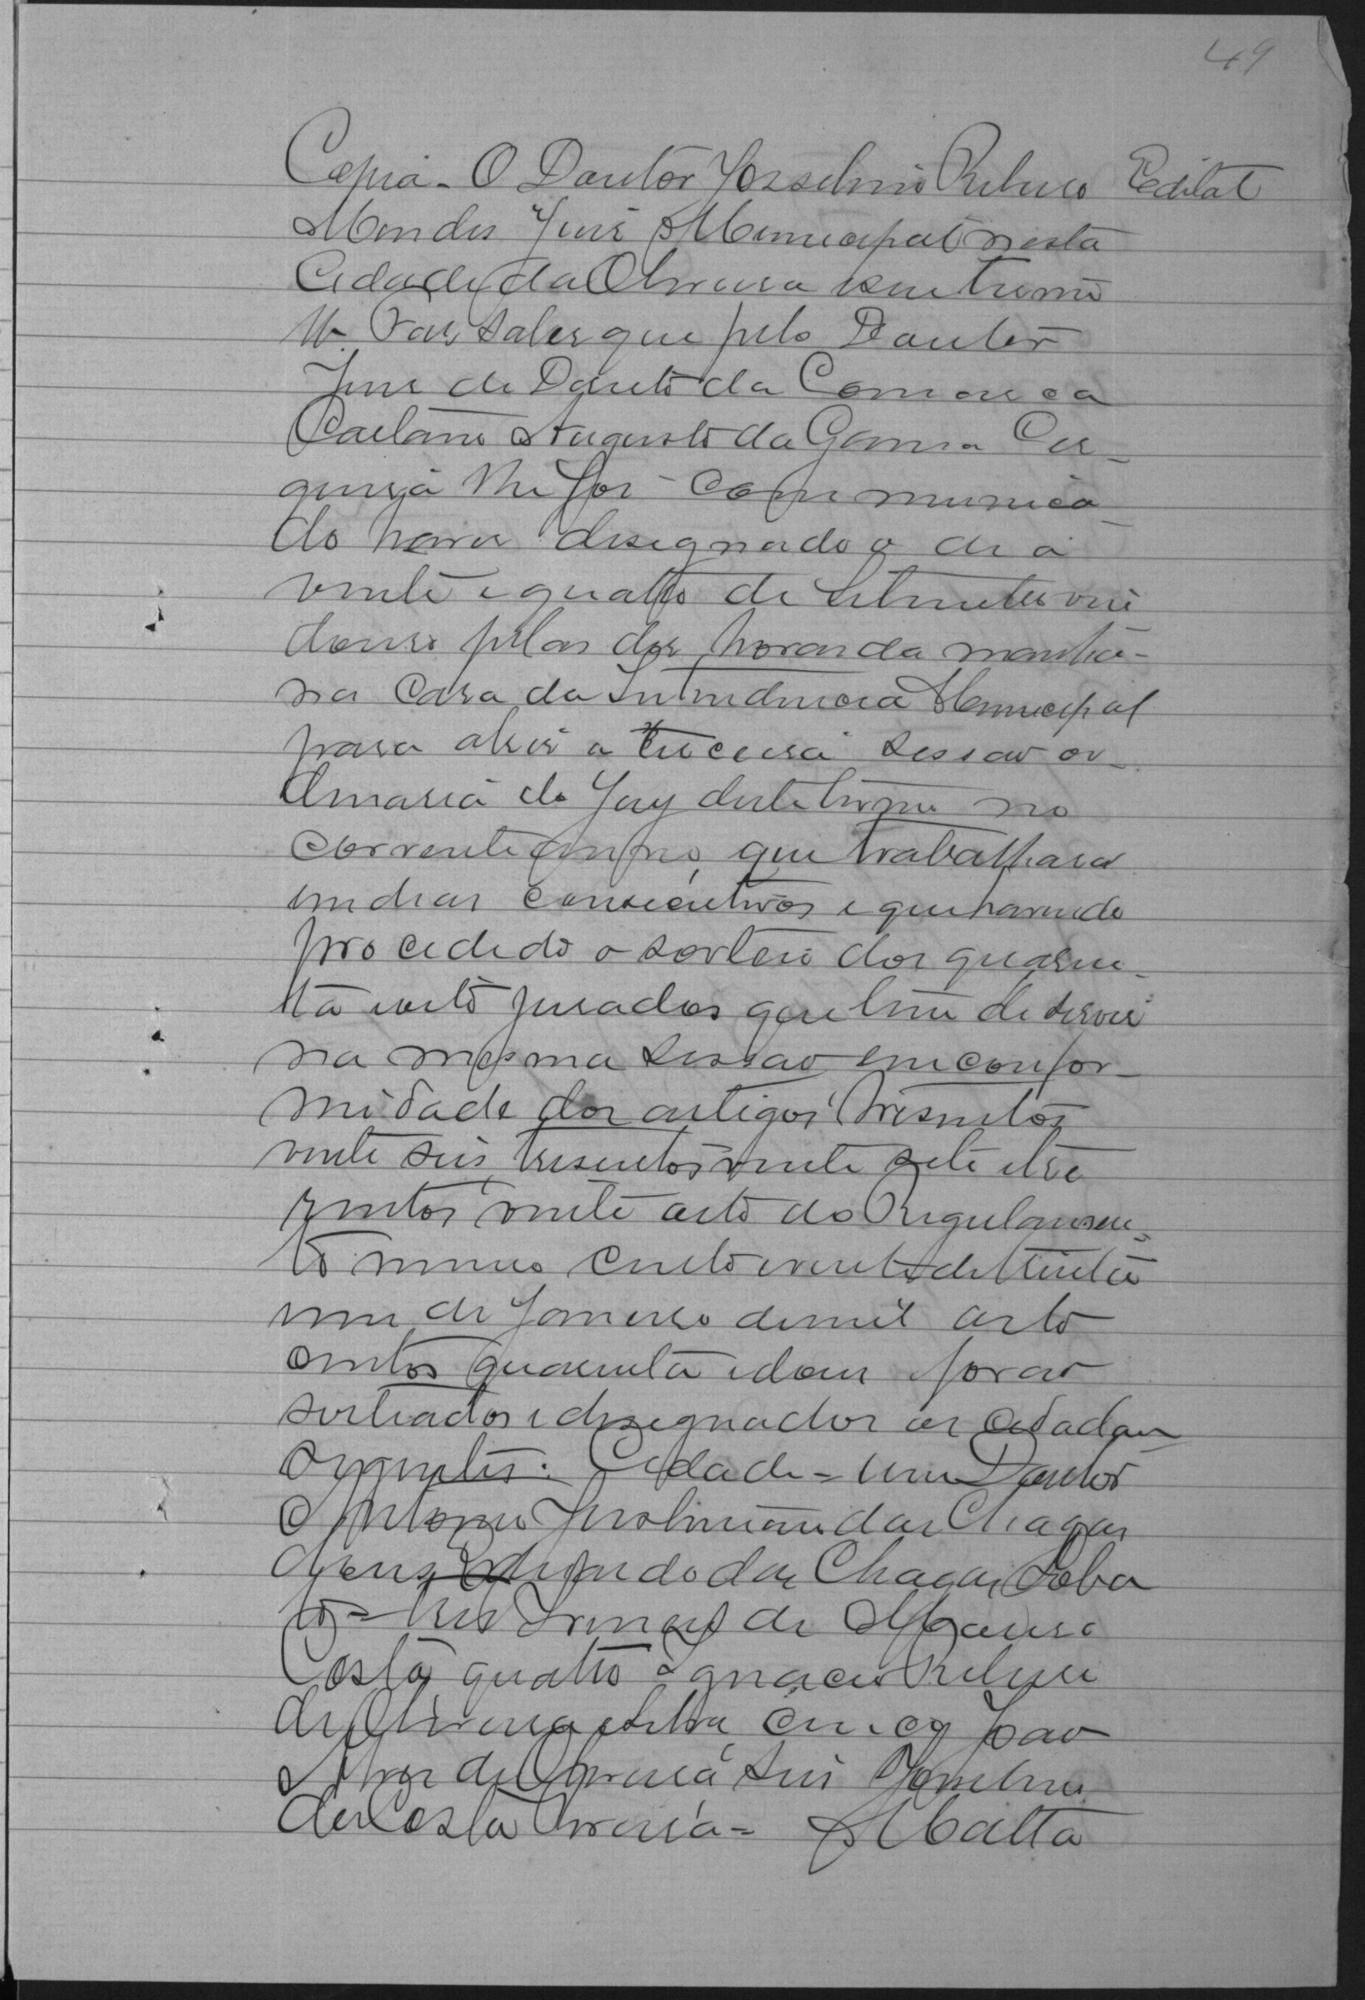 49
Copia. O Doutor Josselino Ribeiro Edital
Mendes Juiz Municipal nesta
Cidade da Oliveira e seu termo
Faz saber que pelo Doutor
Juiz de Direito da Comarca
Caetano Augusto da Gama Cer-
queira lhe foi communica
do haver designado o dia
vinte e quatro de Setembro vin
douro pelas dez horas da manhã
na Casa da Intendencia Municipal
para abrir a terceira sessao or-
dinaria do Jury deste termo no
corrente anno, que trabalhara
em dias consecutivos e que havendo
procedido o sorteio dos quaren-
ta e oito jurados que tem de servir
na mesma sessao em confor-
midade dos artigos tresentos
vinte seis, tresentos vinte sete e tre
zentos vinte oito do Regulamen-
to numero cento e vinte de trinta e
um de Janeiro de mil oito
centos quarenta e dous forao
sorteados e designados os cidadaos
seguintes: Cidade = um Doutor
Antonio Justiniano das Chagas
dous das Chagas Loba
to = tres de
Costa quatro Ignacio Ribeiro
de Oliveira e Silva, cinco Joao
Alves de Oliveira seis
da Costa = Matta